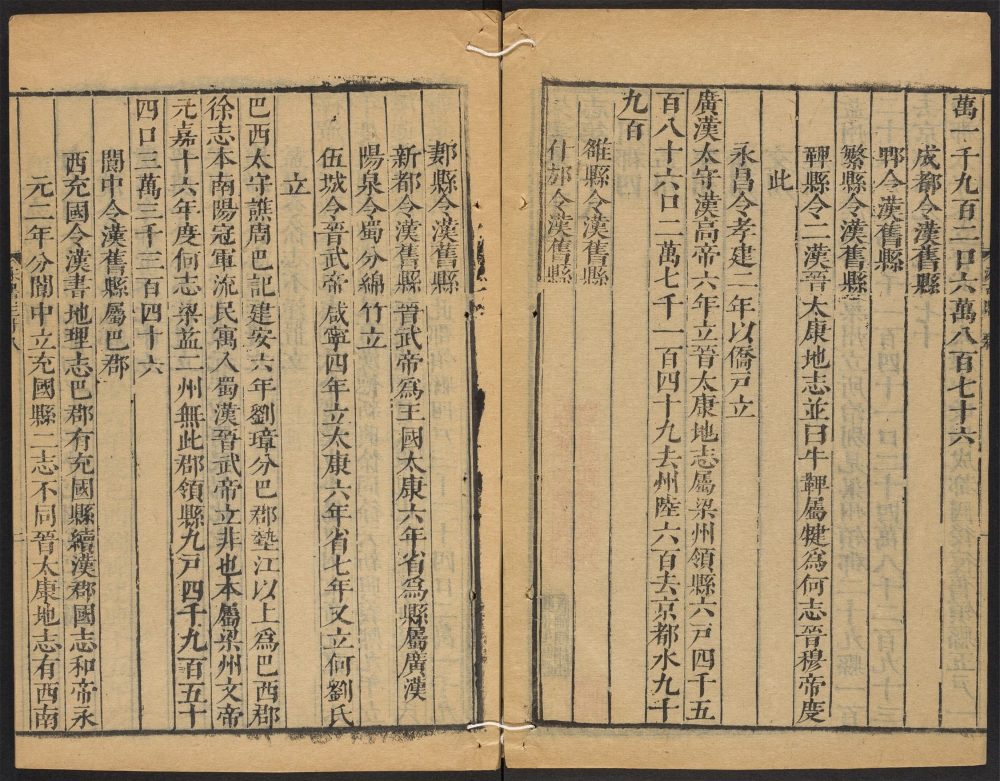 萬一千九百二口六萬八百七十六
成都令漢舊縣
郫令漢舊縣
繁縣令漢舊縣
鞞縣令二漢晉太康地志並曰牛鞞屬犍爲何志晉穆帝度
此
永昌令孝建二年以僑戸立
廣漢太守漢高帝六年立晉太康地志屬梁州領縣六戸四千五
百八十六口二萬七千一百四十九去州陸六百去京都水九千
九百
雒縣令漢舊縣
什邡令漢舊縣
郪縣令漢舊縣
新都令漢舊縣晉武帝爲王國太康六年省爲縣屬廣漢
陽泉令蜀分綿竹立
伍城令晉武帝咸寧四年立太康六年省七年又立何劉氏
立
巴西太守譙周巴記建安六年劉璋分巴郡墊江以上爲巴西郡
徐志本南陽冠軍流民寓入蜀漢晉武帝立非也本屬梁州文帝
元嘉十六年度何志梁益二州無此郡領縣九戸四千九百五十
四口三萬三千三百四十六
閬中令漢舊縣屬巴郡
西充國令漢書地理志巴郡有充國縣續漢郡國志和帝永
元二年分閬中立充國縣二志不同晉太康地志有西南